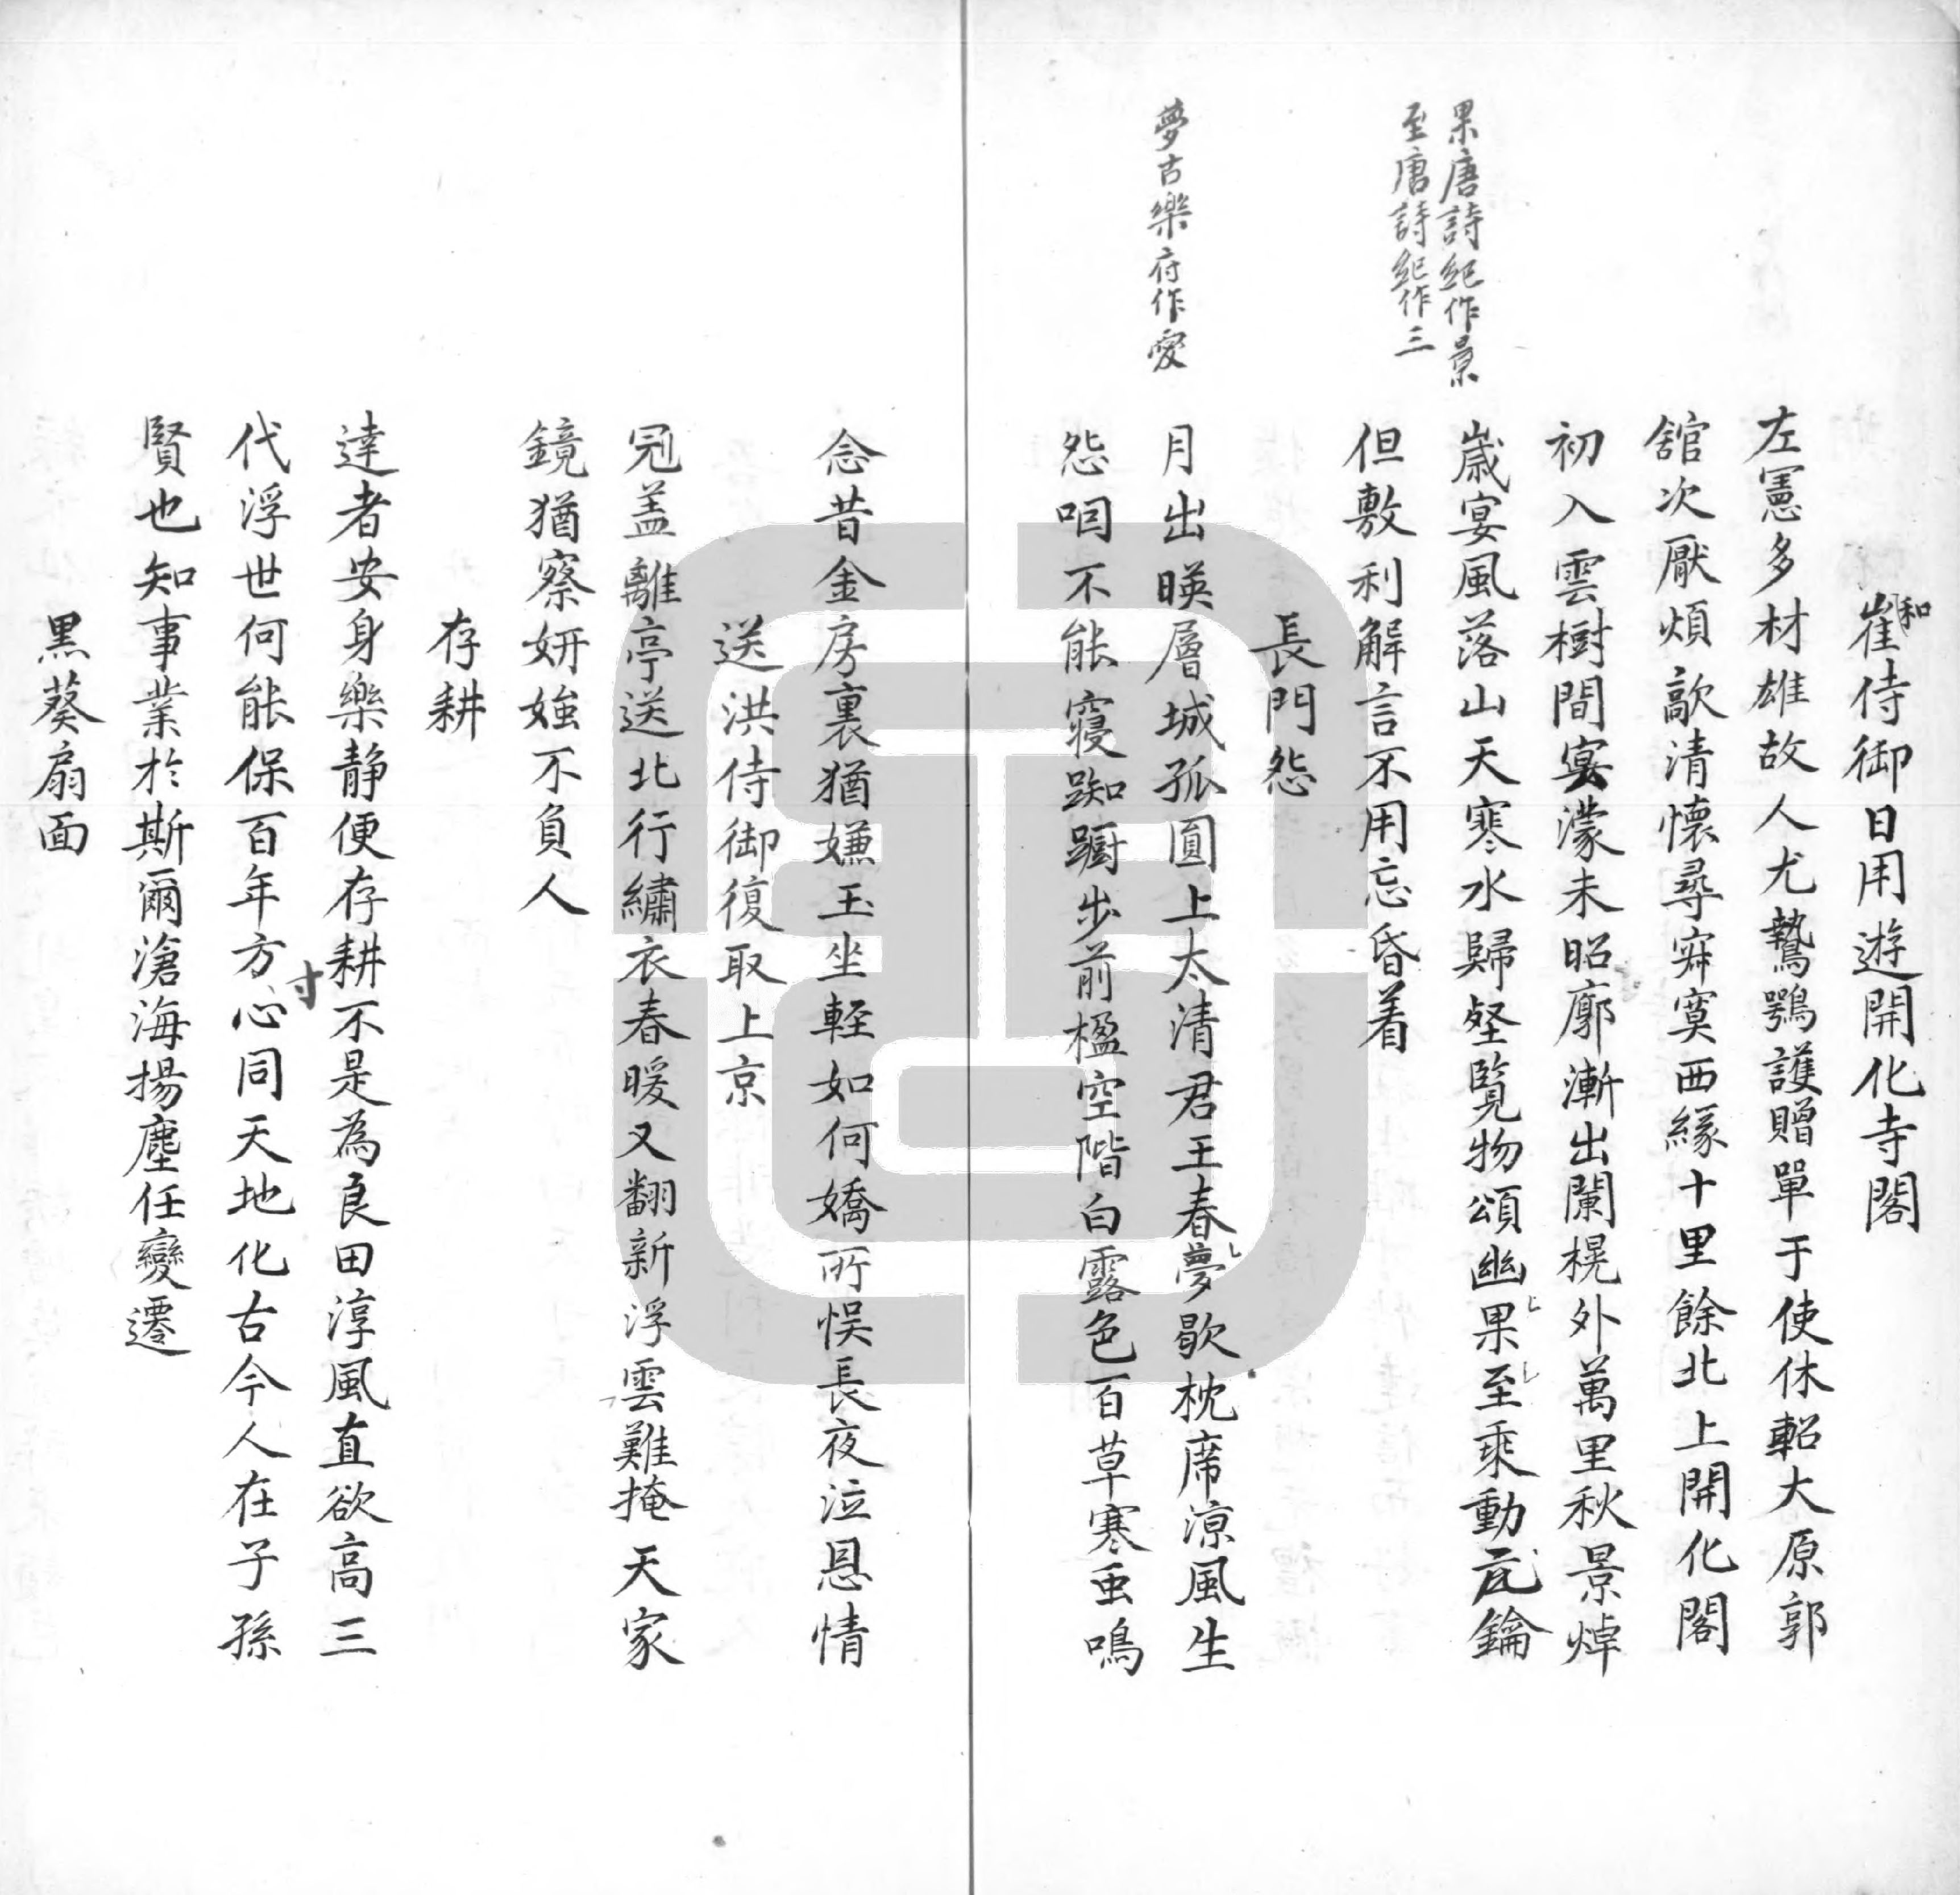 和
崔侍御日用遊開化寺閣
左憲多材雄故人尤鷙鶚護贈單于使休軺大原郭
舘次厭煩歊清懷尋寂寞西緣十里餘北上開化閣
初入雲樹間冥濛未昭廓漸出闌榥外萬里秋景焯
果唐詩紀作景
歲宴風落山天寒水歸壑覽物頌幽果至乘動玄鑰
至唐詩紀作三
但敷利解言不用忘昏着
長門怨
夢古樂府作愛
月出暎層城孤圓上太清君王春夢歇枕席涼風生
怨咽不能寢踟躕步前楹空階白露色百草寒虫鳴
念昔金房裏猶嫌玉坐輕如何嬌所悞長夜泣恩情
送洪侍御復取上京
冠盖離亭送北行繡衣春暖又翻新浮雲難掩天家
鏡猶察妍媸不負人
存耕
達者安身樂静便存耕不是為良田淳風直欲高三
代浮世何能保百年方寸心同天地化古今人在子孫
賢也知事業於斯爾滄海揚塵任變遷
黑葵扇面